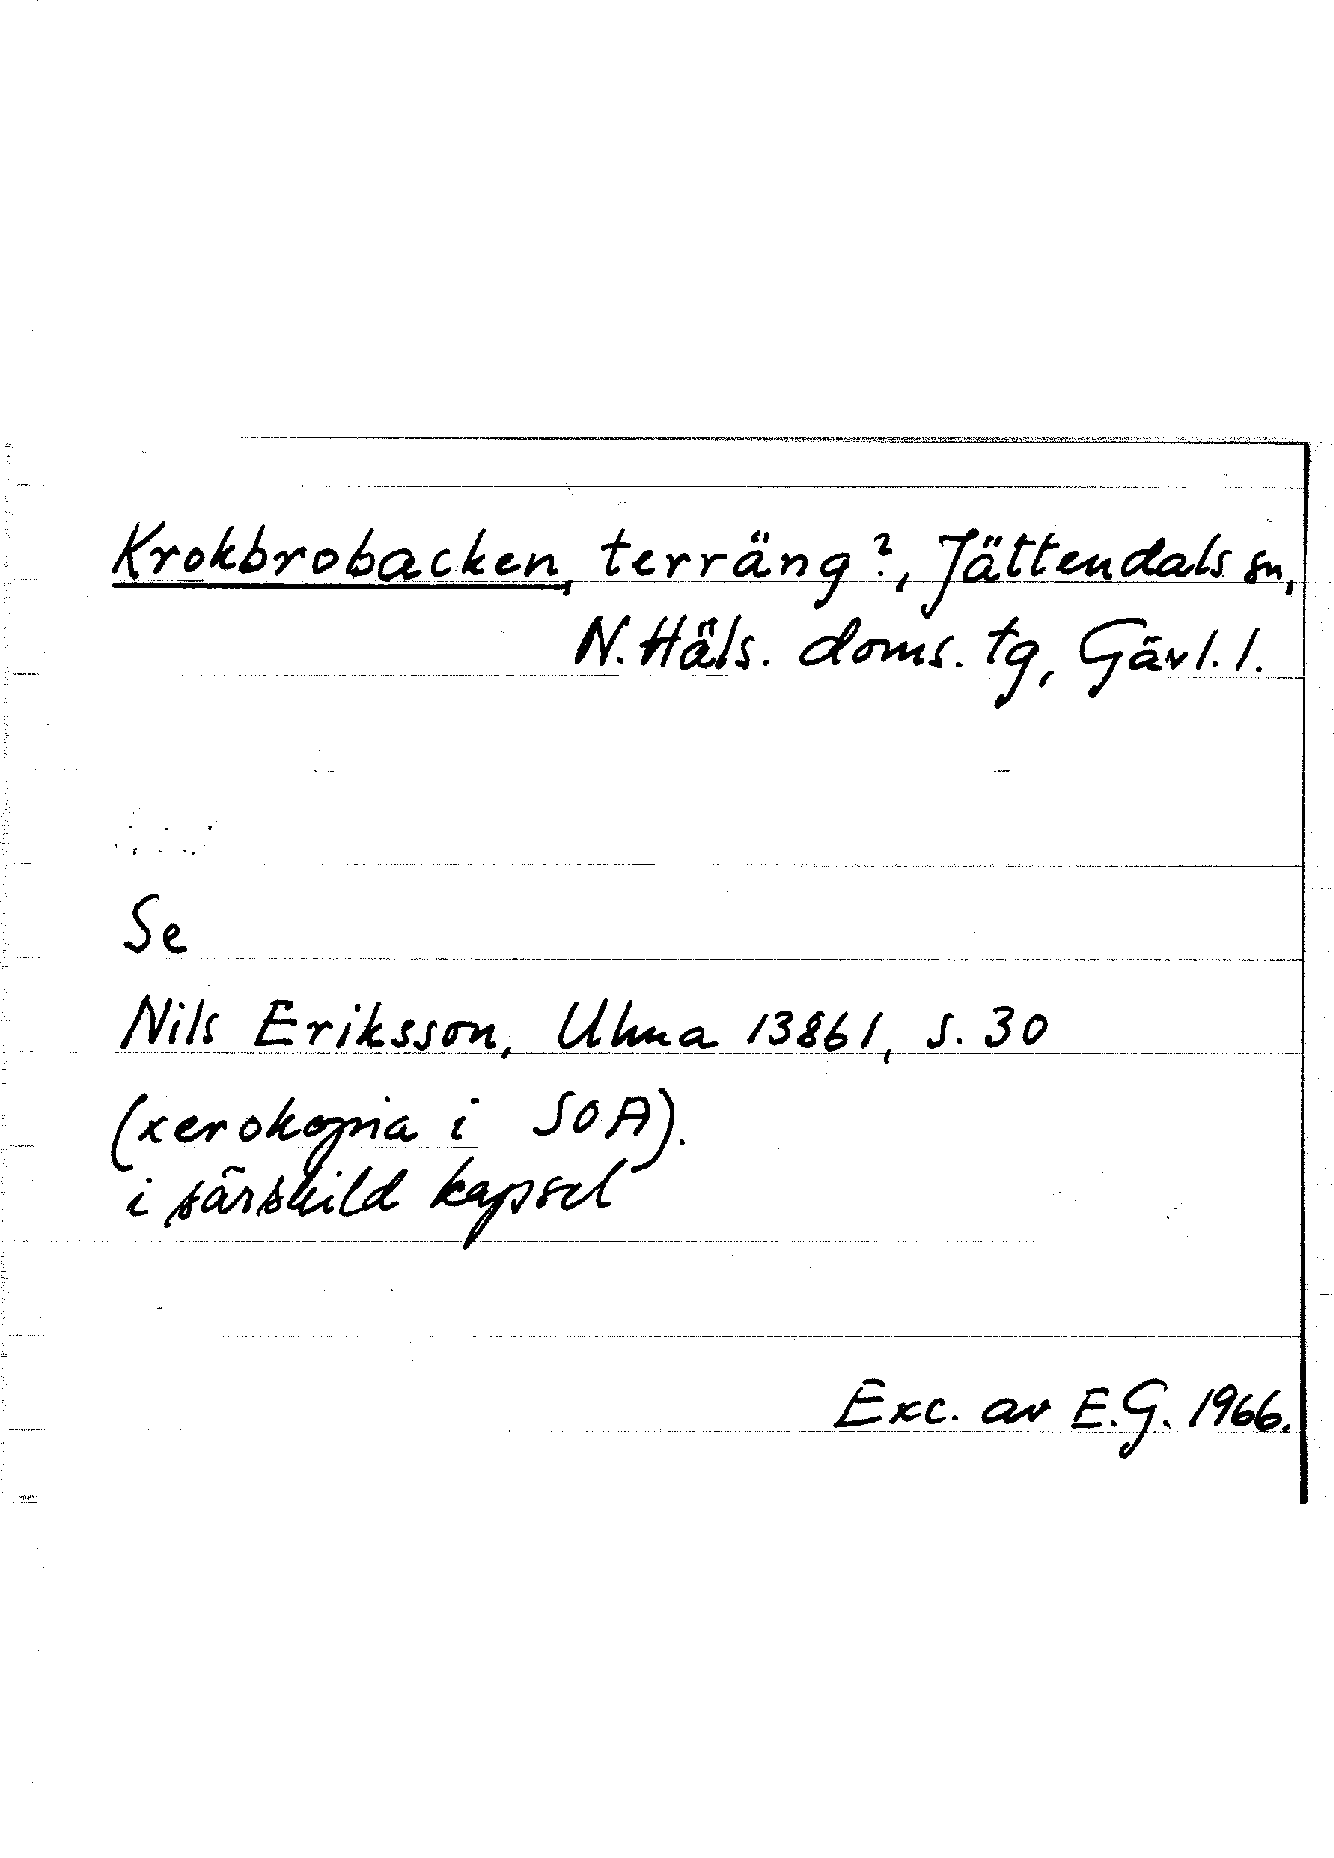 Krokbrobacken, terräng?, Jättendals sn,
N. Häls. doms. tg, Gävl. l.
Se
Nils Eriksson, Ulma 13861, s. 30
(xerokopia i SOA).
i särskild kapsel
Exc. av E.G. 1966.